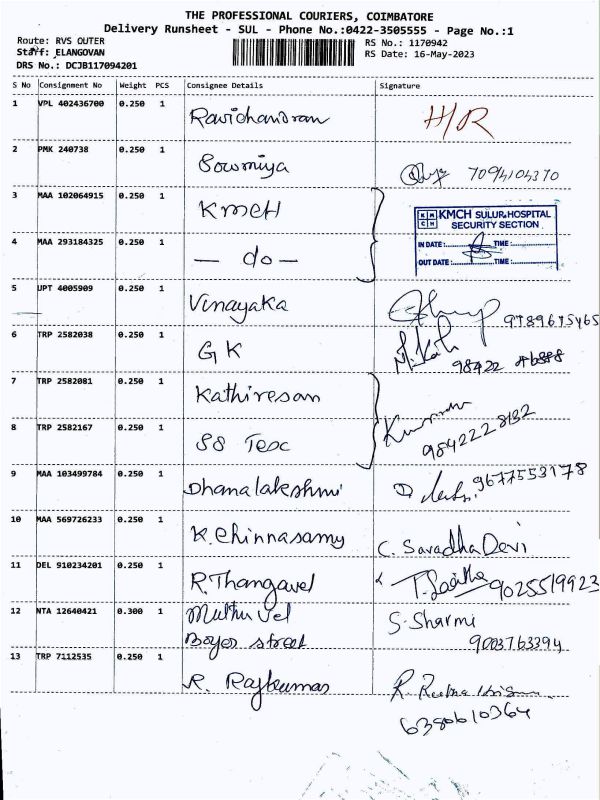 THE PROFESSIONAL COURIERS, COIMBATORE
Delivery Runsheet - SUL - Phone No.:0422-3505555 - Page No.:1
Route: RVS OUTER
RS No.: 1170942
Staff: ELANGOVAN
RS Date: 16-May-2023
DRS No.: DCJB117094201
S No Consignment No Weight PCS Consignee Details Signature
1 VPL 402436700 0.250 1 Ravichandran H/R
2 PMK 240738 0.250 1 Sowmiya 7094104370
3 MAA 102064915 0.250 1 KMCH
KMCH SULUR HOSPITAL
SECURITY SECTION
IN DATE: TIME:
OUT DATE: TIME:
4 MAA 293184325 0.250 1 - do -
5 UPT 4005909 0.250 1 Vinayaka 9789675465
6 TRP 2582038 0.250 1 G K 98422
7 TRP 2582081 0.250 1 Kathiresan
8 TRP 2582167 0.250 1 SS Tex 9842228132
9 MAA 103499784 0.250 1 Dhanalakshmi 9677553178
10 MAA 569726233 0.250 1 K. Chinnasamy C. Saradha Devi
11 DEL 910234201 0.250 1 R. Thangavel 9025519923
12 NTA 12640421 0.300 1 Muthu vel S. Sharmi
Boyer street 9003763394
13 TRP 7112535 0.250 1 R. Rajkumar R.
6380610364